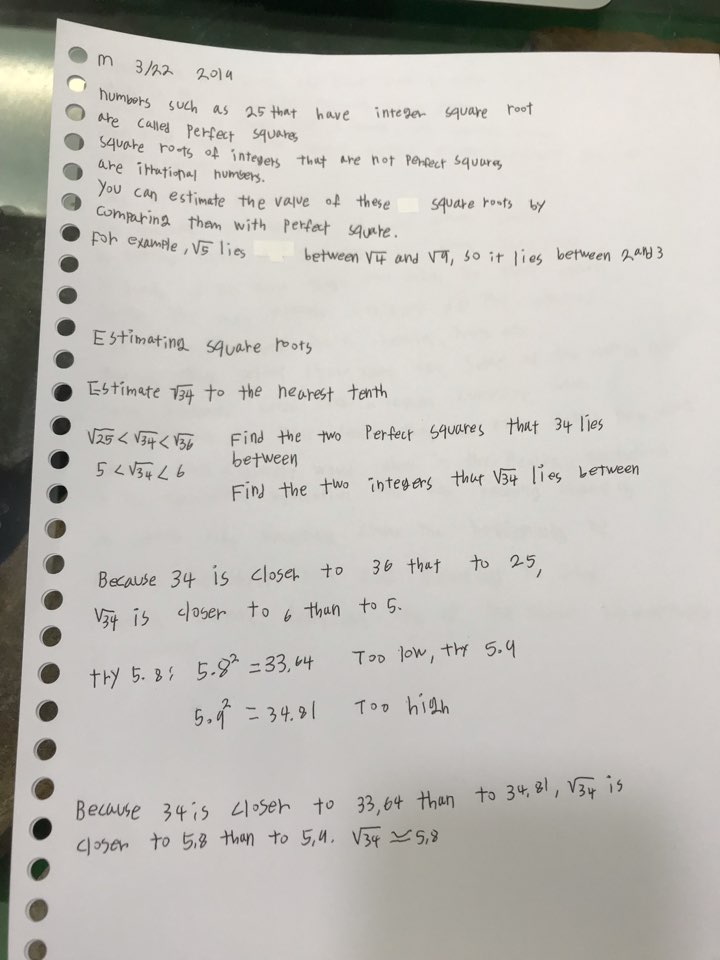 m 3/22 2019
numbers such as 25 that have integer square root
are called perfect squares
square roots of integers that are not perfect squares
are irrational numbers.
You can estimate the value of these square roots by
comparing them with perfect square.
for example, √5 lies between √4 and √9, so it lies between 2 and 3
Estimating square roots
Estimate √34 to the nearest tenth
√25 < √34 < √36 Find the two perfect squares that 34 lies
between
5 < √34 < 6
Find the two integers that √34 lies between
Because 34 is closer to 36 that to 25,
√34 is closer to 6 than to 5.
try 5.8: 5.8² = 33,64 Too low, try 5.9
5.9² = 34.81 Too high
Because 34 is closer to 33,64 than to 34,81, √34 is
closer to 5,8 than to 5,9. √34 ≃ 5,8